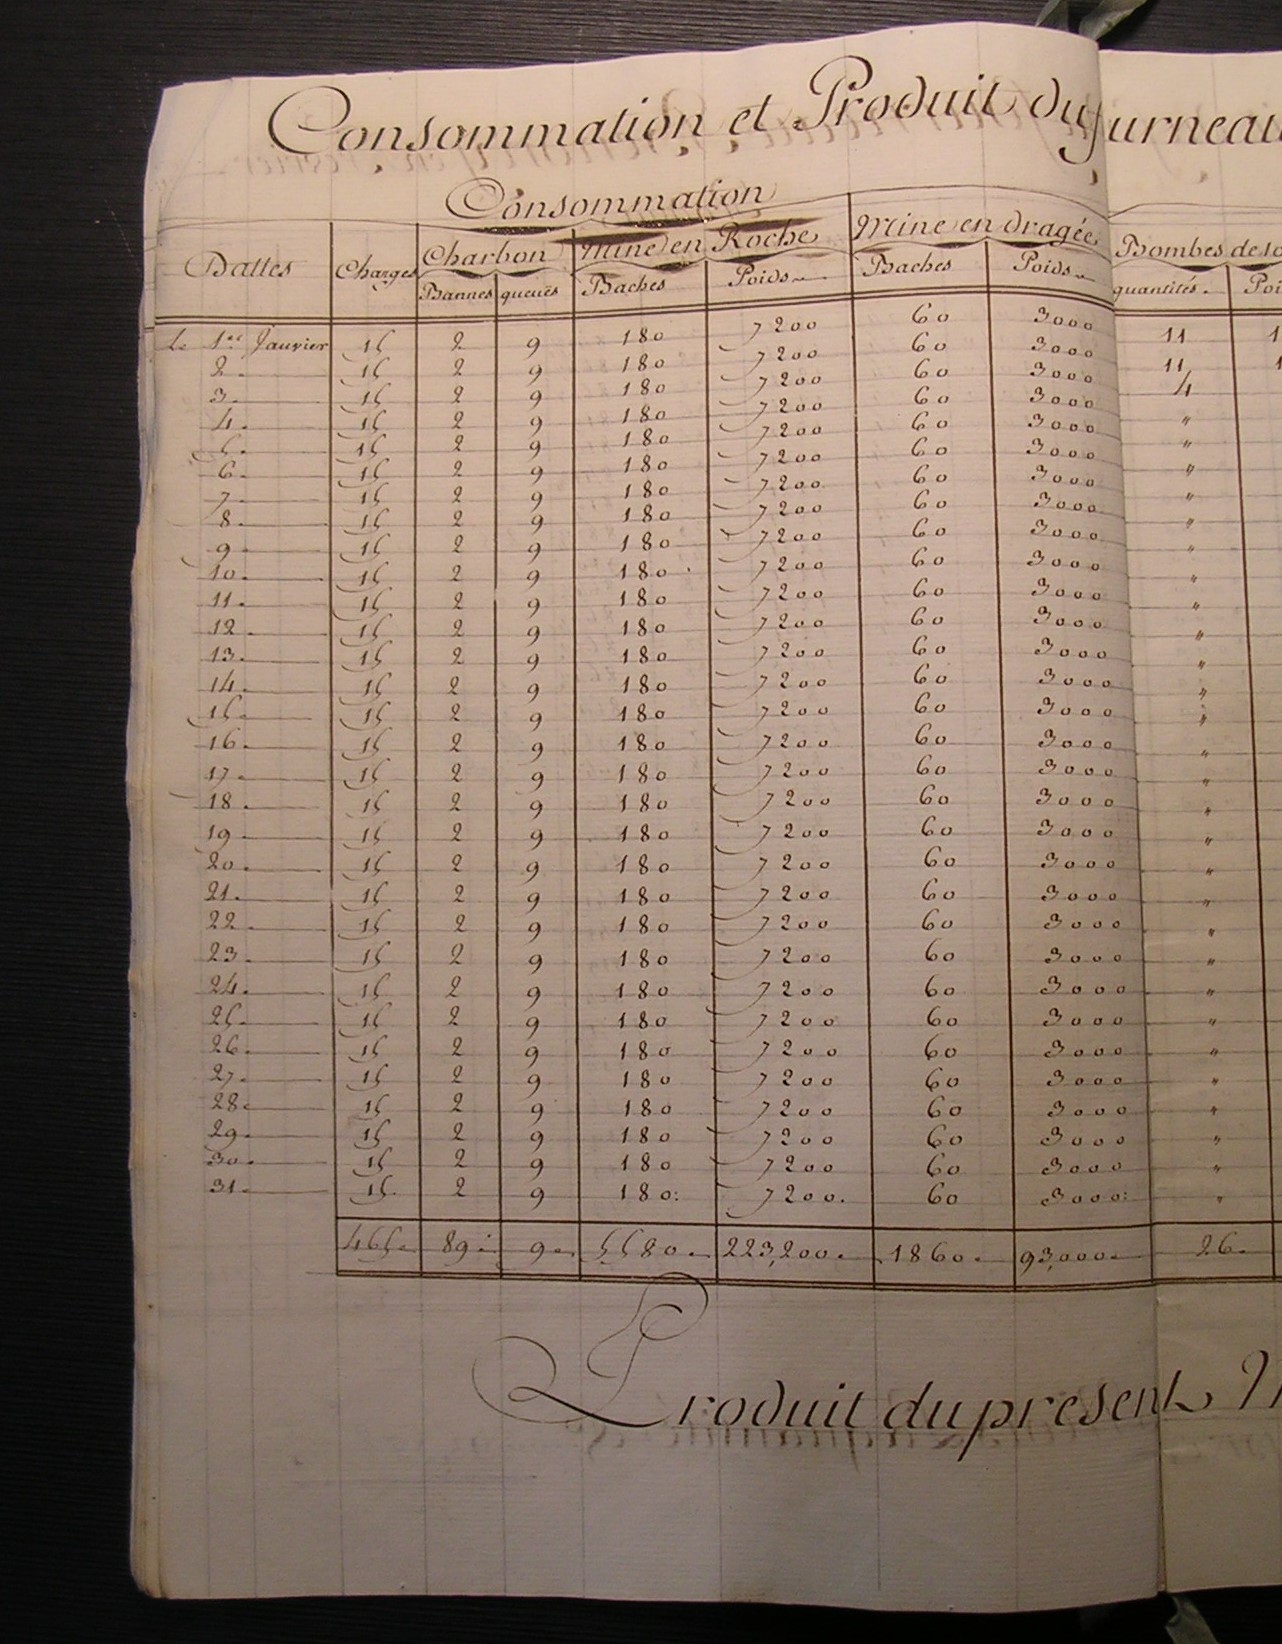 Consommation et Produit du furneau
Consommation
Dattes Charges Charbon Mine en Roche Mine en dragée Bombes de
Bannes queües Baches Poids Baches Poids quantités.
Le 1er Janvier 15 2 9 180 7200 60 3000 11
2 15 2 9 180 7200 60 3000 11
3 15 2 9 180 7200 60 3000 4
4 15 2 9 180 7200 60 3000 "
5 15 2 9 180 7200 60 3000 "
6 15 2 9 180 7200 60 3000 "
7 15 2 9 180 7200 60 3000 "
8 15 2 9 180 7200 60 3000 "
9 15 2 9 180 7200 60 3000 "
10 15 2 9 180 7200 60 3000 "
11 15 2 9 180 7200 60 3000 "
12 15 2 9 180 7200 60 3000 "
13 15 2 9 180 7200 60 3000 "
14 15 2 9 180 7200 60 3000 "
15 15 2 9 180 7200 60 3000 "
16 15 2 9 180 7200 60 3000 "
17 15 2 9 180 7200 60 3000 "
18 15 2 9 180 7200 60 3000 "
19 15 2 9 180 7200 60 3000 "
20 15 2 9 180 7200 60 3000 "
21 15 2 9 180 7200 60 3000 "
22 15 2 9 180 7200 60 3000 "
23 15 2 9 180 7200 60 3000 "
24 15 2 9 180 7200 60 3000 "
25 15 2 9 180 7200 60 3000 "
26 15 2 9 180 7200 60 3000 "
27 15 2 9 180 7200 60 3000 "
28 15 2 9 180 7200 60 3000 "
29 15 2 9 180 7200 60 3000 "
30 15 2 9 180 7200 60 3000 "
31 15 2 9 180 7200 60 3000 "
465 89 9 5580 223,200 1860 93,000 26
Produit du present